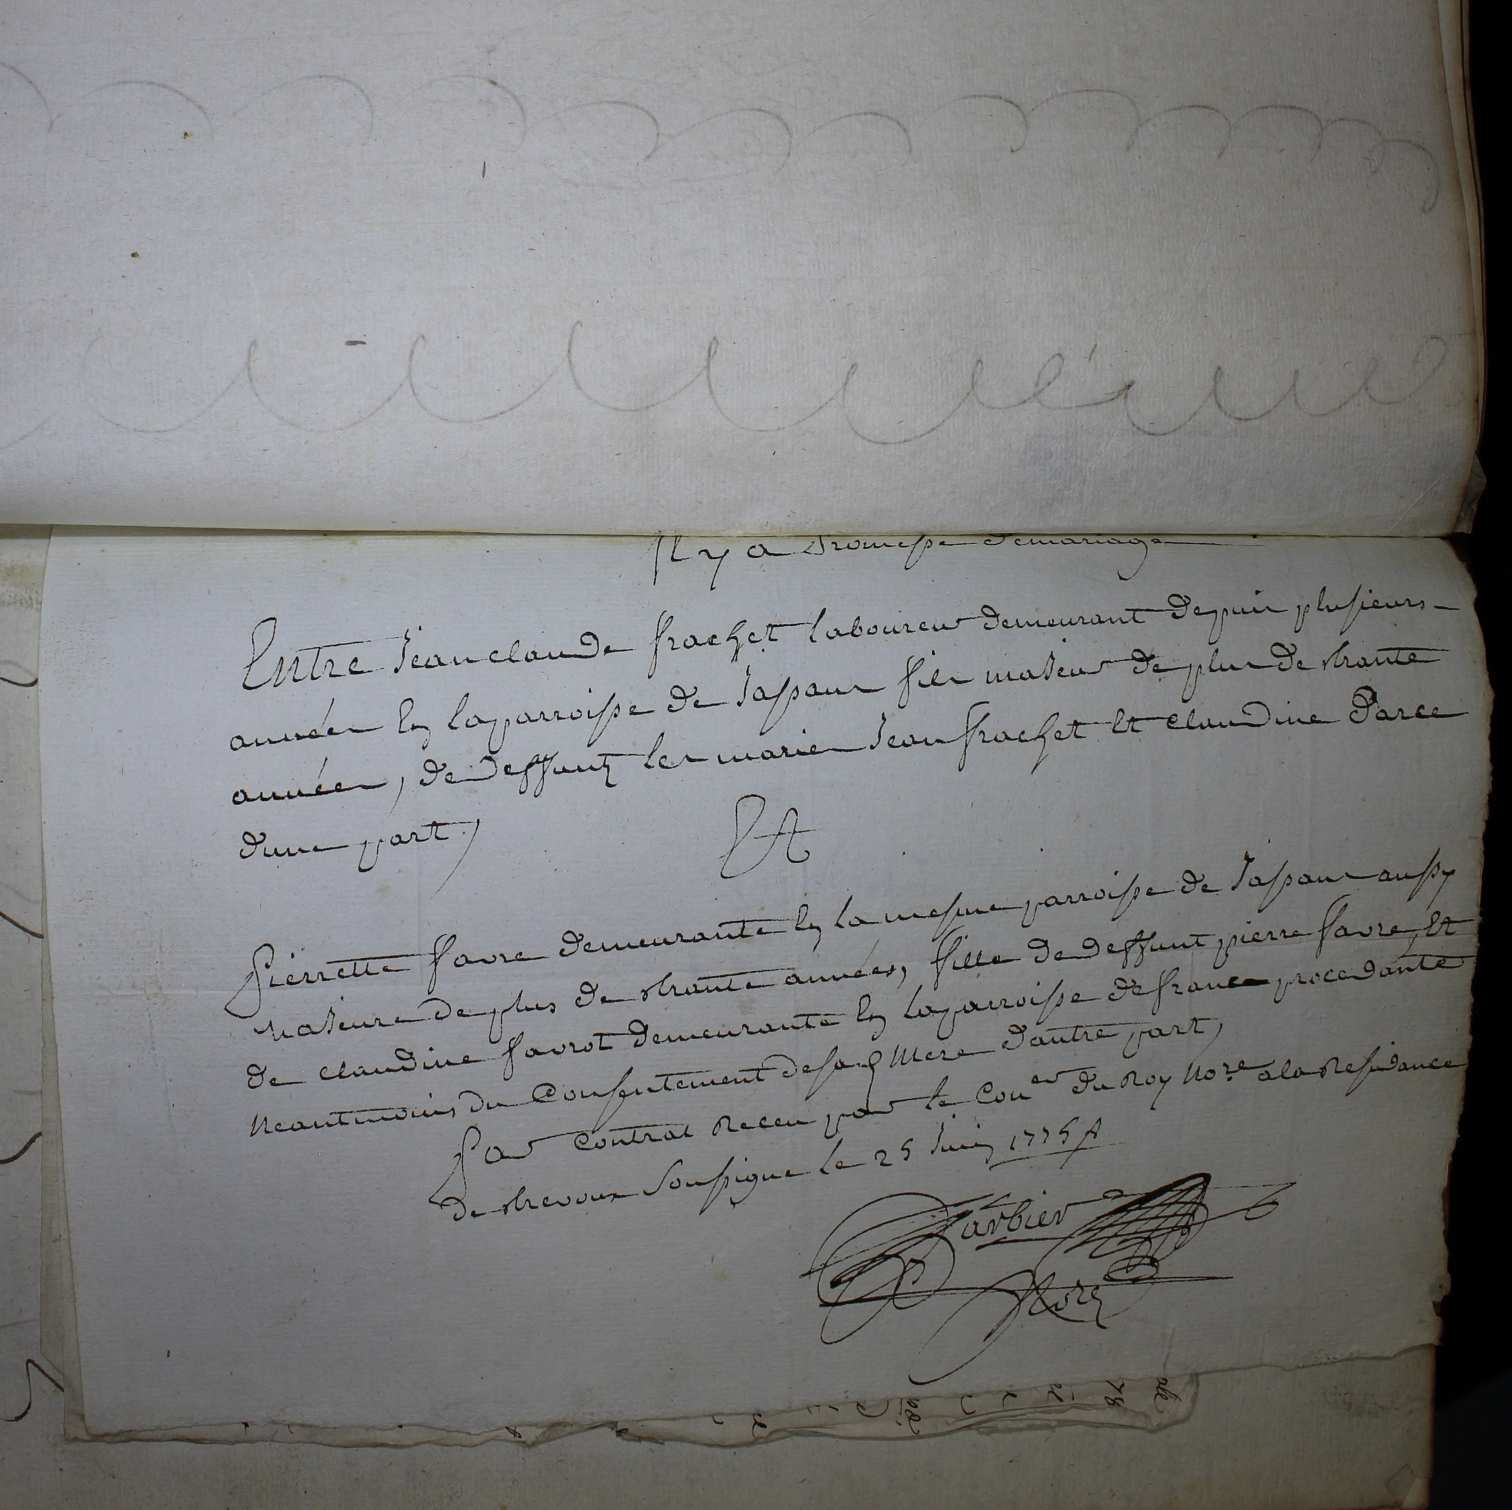 Il y a promesse de mariage
Entre Jean claude frachet laboureur demeurant depuis plusieurs
années en la parroisse de Jassans fils majeur de plus de trante
années, de deffunts les mariés Jean frachet Et claudine Parce
dune part,
Et
Pierrette favre demeurante en la mesme parroisse de Jassans aussy
majeure de plus de trante années, fille de deffunt pierre favre, Et
de claudine favrot demeurante en la parroisse de france procedante
Neantmoins du Consentement de sad. Mere d'autre part,
Par Contrat Receu par le Coner du Roy Nore a la Residance
de trevoux Soussigné le 25 Juin 1775
Barbier
Nore